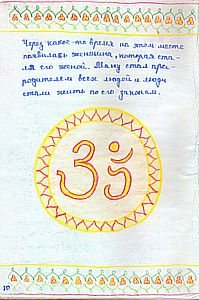 Через какое-то время на этом месте
появилась женщина, которая ста-
ла его женой. Ману стал пра-
родителем всех людей и люди
стали жить по его законам.
ॐ
10